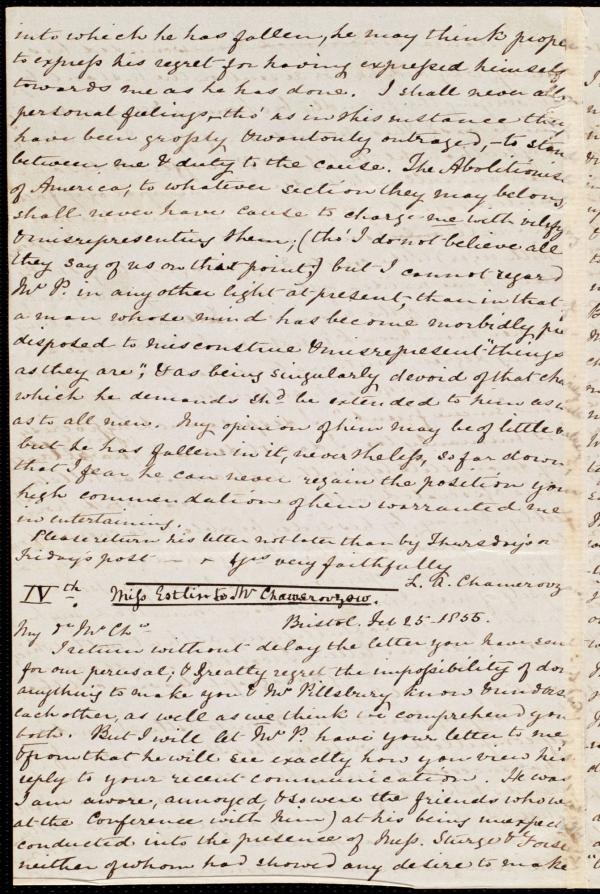 into which he has fallen, he may think prope
to express his regret for having expressed himself
towards me as he has done. I shall never allo
personal feelings,—tho' as in this instance they
have been grossly & wantonly outraged,—to stan
between me & duty to the cause. The Abolitionis
of America, to whatever section they may belong,
shall never have cause to charge me with vilify
& misrepresenting them, (tho' I do not believe all
they say of us on that point;) but I cannot regard
Mr P. in any other light at present, than in that
a man whose mind has become morbidly pre
disposed to misconstrue & misrepresent "things
as they are", & as being singularly devoid of that cha
which he demands shd be extended to him as w
as to all men. My opinion of him may be of little v
but he has fallen in it, nevertheless, so far down
that I fear he can never regain the position your
high commendation of him warranted me
in entertaining.
Please return his letter not later than by Thursday's or
Friday's post — + Yrs very faithfully
L. A. Chamerovz
IVth. Miss Estlin to Mr Chamerovzow.
Bristol. Feb 25. 1855.
My dr Mr Chw
I return without delay the letter you have sent
for our perusal; & greatly regret the impossibility of doi
anything to make you & Mr Pillsbury know & unders
each other, as well as we think we comprehend you
both. But I will let Mr P. have your letter to me
& from that he will see exactly how you view his
reply to your recent communication. He was
I am aware, annoyed, (& so were the friends who we
at the Conference with him) at his being unexpect
conducted into the presence of Mess. Sturge & Forst
neither of whom had showed any desire to make